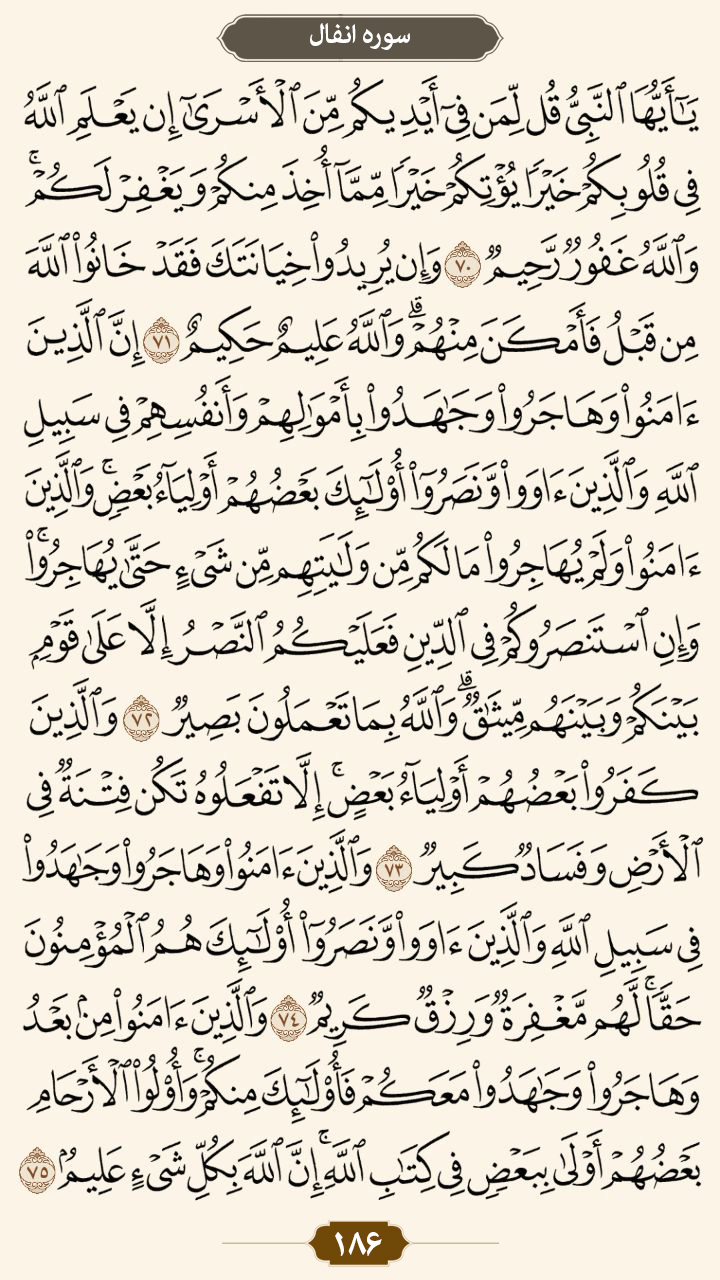 سوره انفال
يَـٰٓأَيُّهَا ٱلنَّبِىُّ قُل لِّمَن فِىٓ أَيْدِيكُم مِّنَ ٱلْأَسْرَىٰٓ إِن يَعْلَمِ ٱللَّهُ
فِى قُلُوبِكُمْ خَيْرًا يُؤْتِكُمْ خَيْرًا مِّمَّآ أُخِذَ مِنكُمْ وَيَغْفِرْ لَكُمْ ۚ
وَٱللَّهُ غَفُورٌ رَّحِيمٌ ٧٠ وَإِن يُرِيدُوا۟ خِيَانَتَكَ فَقَدْ خَانُوا۟ ٱللَّهَ
مِن قَبْلُ فَأَمْكَنَ مِنْهُمْ ۗ وَٱللَّهُ عَلِيمٌ حَكِيمٌ ٧١ إِنَّ ٱلَّذِينَ
ءَامَنُوا۟ وَهَاجَرُوا۟ وَجَـٰهَدُوا۟ بِأَمْوَٰلِهِمْ وَأَنفُسِهِمْ فِى سَبِيلِ
ٱللَّهِ وَٱلَّذِينَ ءَاوَوا۟ وَّنَصَرُوٓا۟ أُو۟لَـٰٓئِكَ بَعْضُهُمْ أَوْلِيَآءُ بَعْضٍ ۚ وَٱلَّذِينَ
ءَامَنُوا۟ وَلَمْ يُهَاجِرُوا۟ مَا لَكُم مِّن وَلَـٰيَتِهِم مِّن شَىْءٍ حَتَّىٰ يُهَاجِرُوا۟ ۚ
وَإِنِ ٱسْتَنصَرُوكُمْ فِى ٱلدِّينِ فَعَلَيْكُمُ ٱلنَّصْرُ إِلَّا عَلَىٰ قَوْمٍۭ
بَيْنَكُمْ وَبَيْنَهُم مِّيثَـٰقٌ ۗ وَٱللَّهُ بِمَا تَعْمَلُونَ بَصِيرٌ ٧٢ وَٱلَّذِينَ
كَفَرُوا۟ بَعْضُهُمْ أَوْلِيَآءُ بَعْضٍ ۚ إِلَّا تَفْعَلُوهُ تَكُن فِتْنَةٌ فِى
ٱلْأَرْضِ وَفَسَادٌ كَبِيرٌ ٧٣ وَٱلَّذِينَ ءَامَنُوا۟ وَهَاجَرُوا۟ وَجَـٰهَدُوا۟
فِى سَبِيلِ ٱللَّهِ وَٱلَّذِينَ ءَاوَوا۟ وَّنَصَرُوٓا۟ أُو۟لَـٰٓئِكَ هُمُ ٱلْمُؤْمِنُونَ
حَقًّا ۚ لَّهُم مَّغْفِرَةٌ وَرِزْقٌ كَرِيمٌ ٧٤ وَٱلَّذِينَ ءَامَنُوا۟ مِنۢ بَعْدُ
وَهَاجَرُوا۟ وَجَـٰهَدُوا۟ مَعَكُمْ فَأُو۟لَـٰٓئِكَ مِنكُمْ ۚ وَأُو۟لُوا۟ ٱلْأَرْحَامِ
بَعْضُهُمْ أَوْلَىٰ بِبَعْضٍ فِى كِتَـٰبِ ٱللَّهِ ۗ إِنَّ ٱللَّهَ بِكُلِّ شَىْءٍ عَلِيمٌۢ ٧٥
۱۸۶